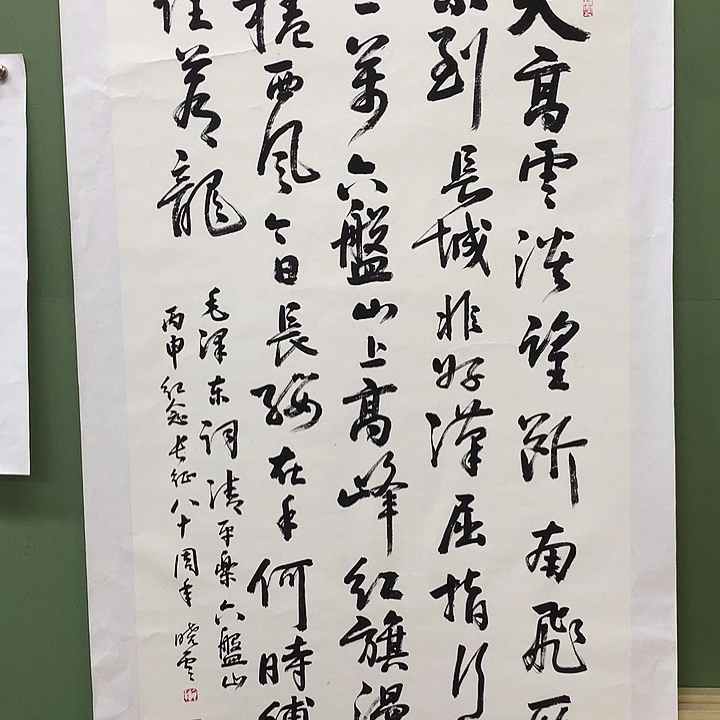 天高雲淡望断南飛雁
不到長城非好漢屈指行
二萬六盤山上高峰紅旗漫
捲西風今日長纓在手何時縛
住蒼龍
毛泽东词清平樂六盤山
丙申纪念长征八十周年晓雲